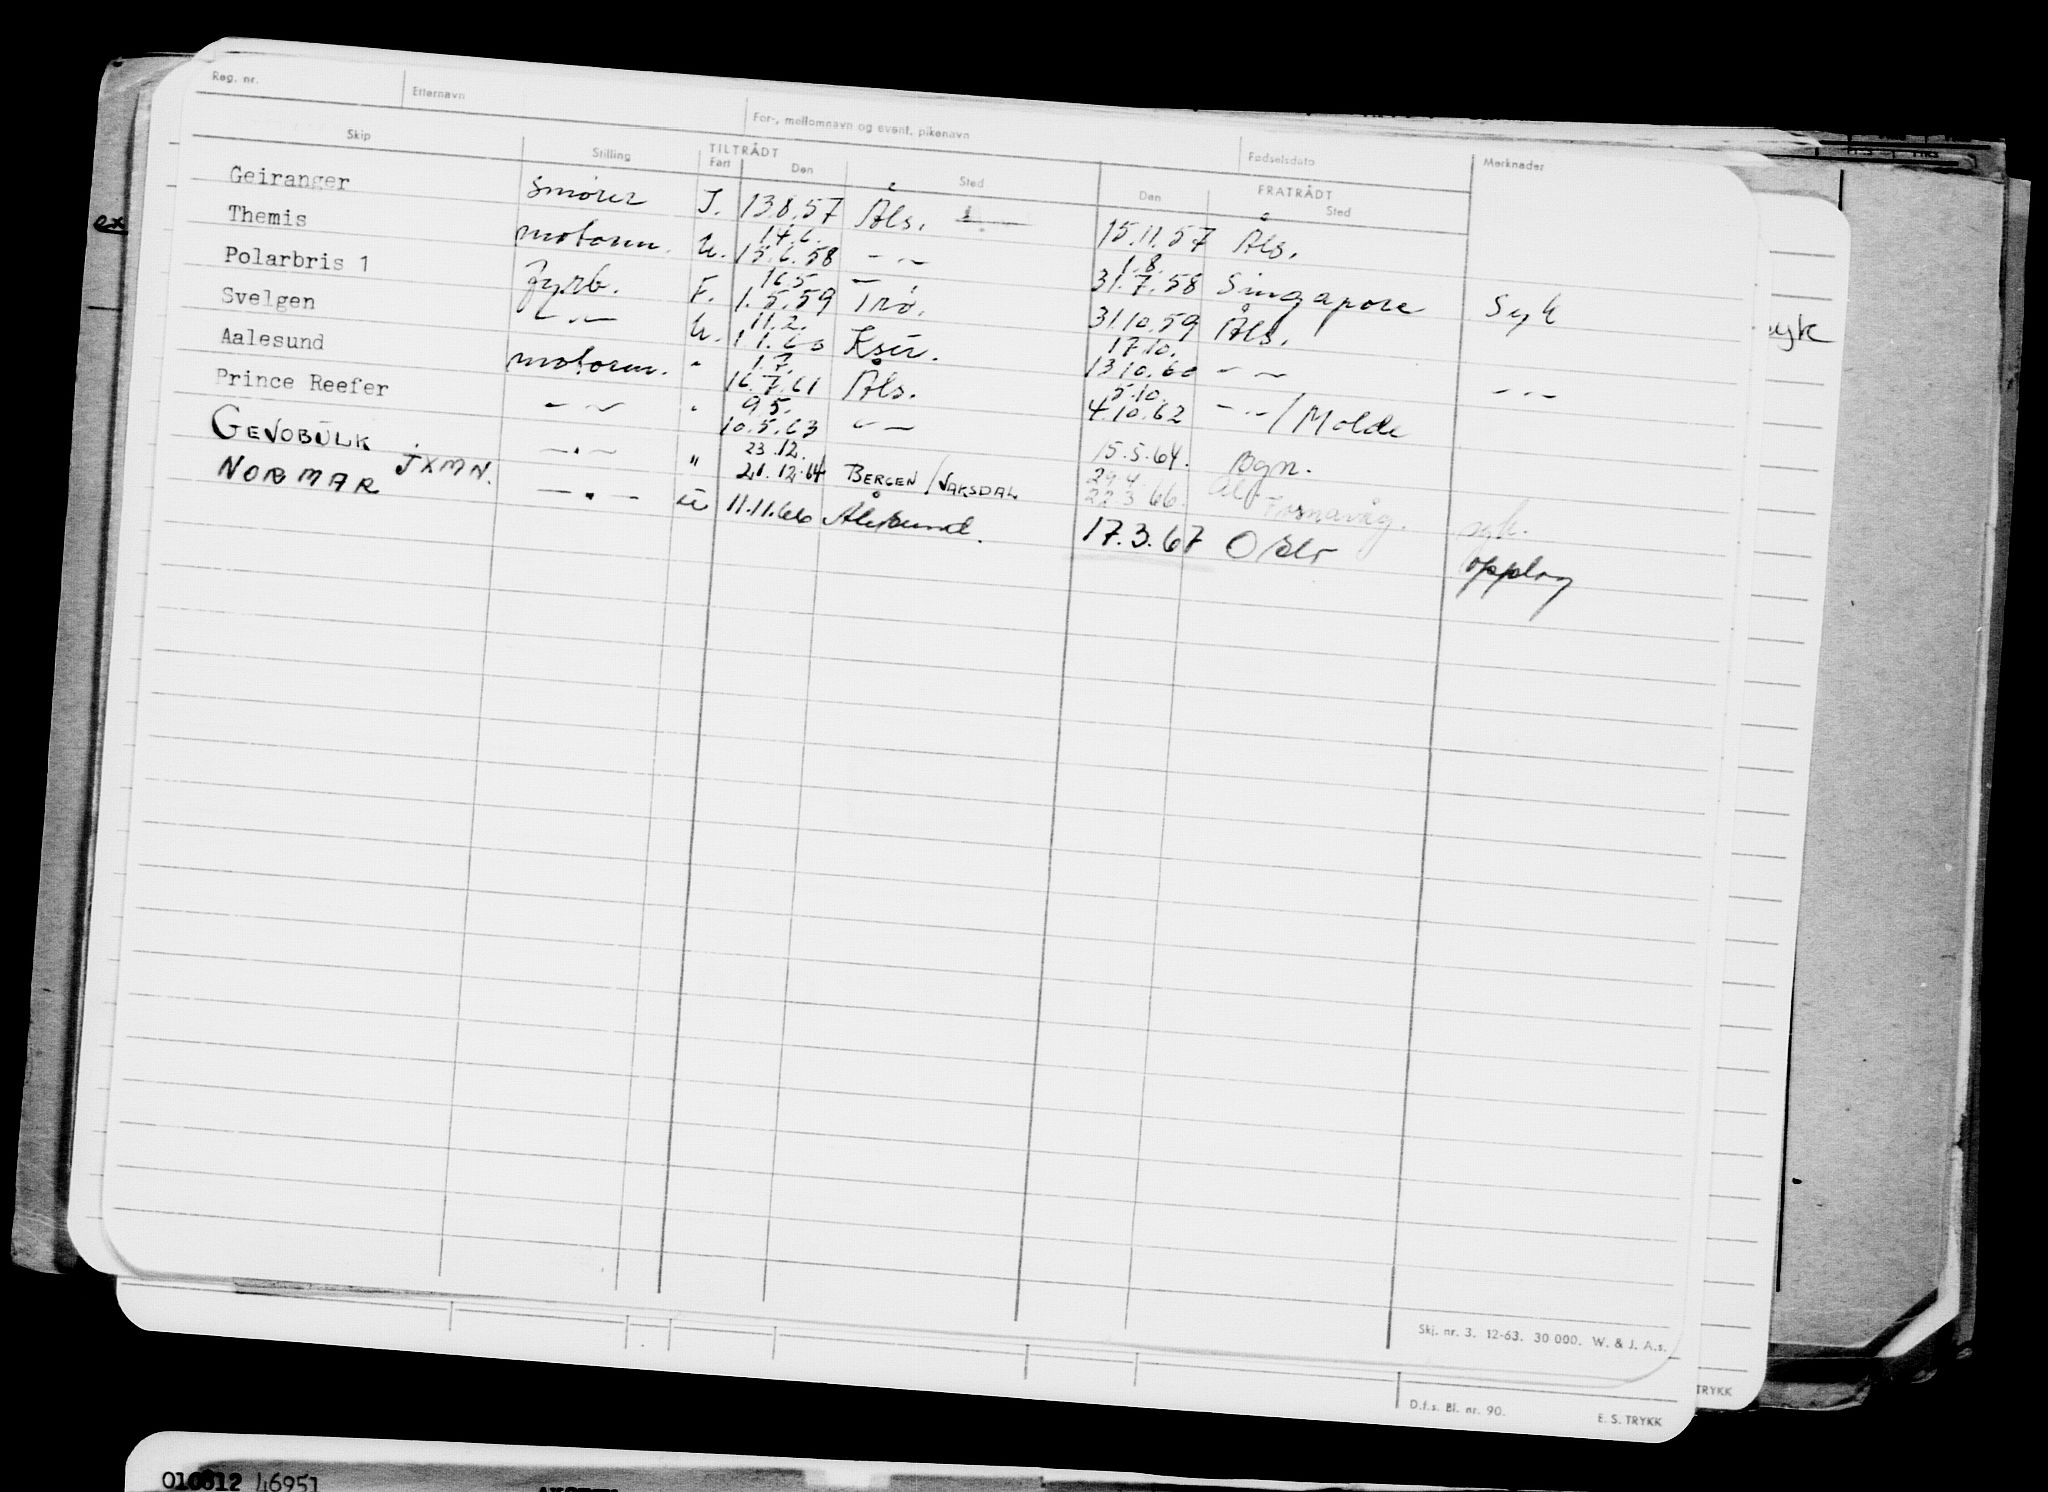 Reg. nr. Etternavn For-, mellomnavn og event. pikenavn Fødselsdato Merknader
Skip Stilling TILTRÅDT FRATRÅDT
Fart Den Sted Den Sted
Geiranger smører I. 13.8.57 Åls. 15.11.57 Åls.
14.6. 1.8.
Themis motorm. U. 15.6.58 - " - 31.7.58 Singapore Syk
16.5
Polarbris 1 fyrb. F. 1.5.59 Trø. 31.10.59 Åls.
11.2. 17.10.
Svelgen - " - U. 1.1.60 Ksu. 13.10.60 - " - - " -
1.7. 5.10.
Aalesund motorm. " 16.7.61 Åls. 4.10.62 - " - / Molde
9.5.
Prince Reefer - " - " 10.5.63 - " - 15.5.64. Bgn.
23.12. 29.4
GEVOBULK JXMN. - " - " 21.12.64 BERGEN / VAKSDAL 22.3.66. Fosnavåg. syk.
NORMAR - " - U 11.11.66 Ålesund. 17.3.67 Oslo opplag
ex
syk
Skj. nr. 3. 12-63. 30 000. W. & J. A.s.
TRYKK
D.f.s. Bl. nr. 90. E. S. TRYKK
46951